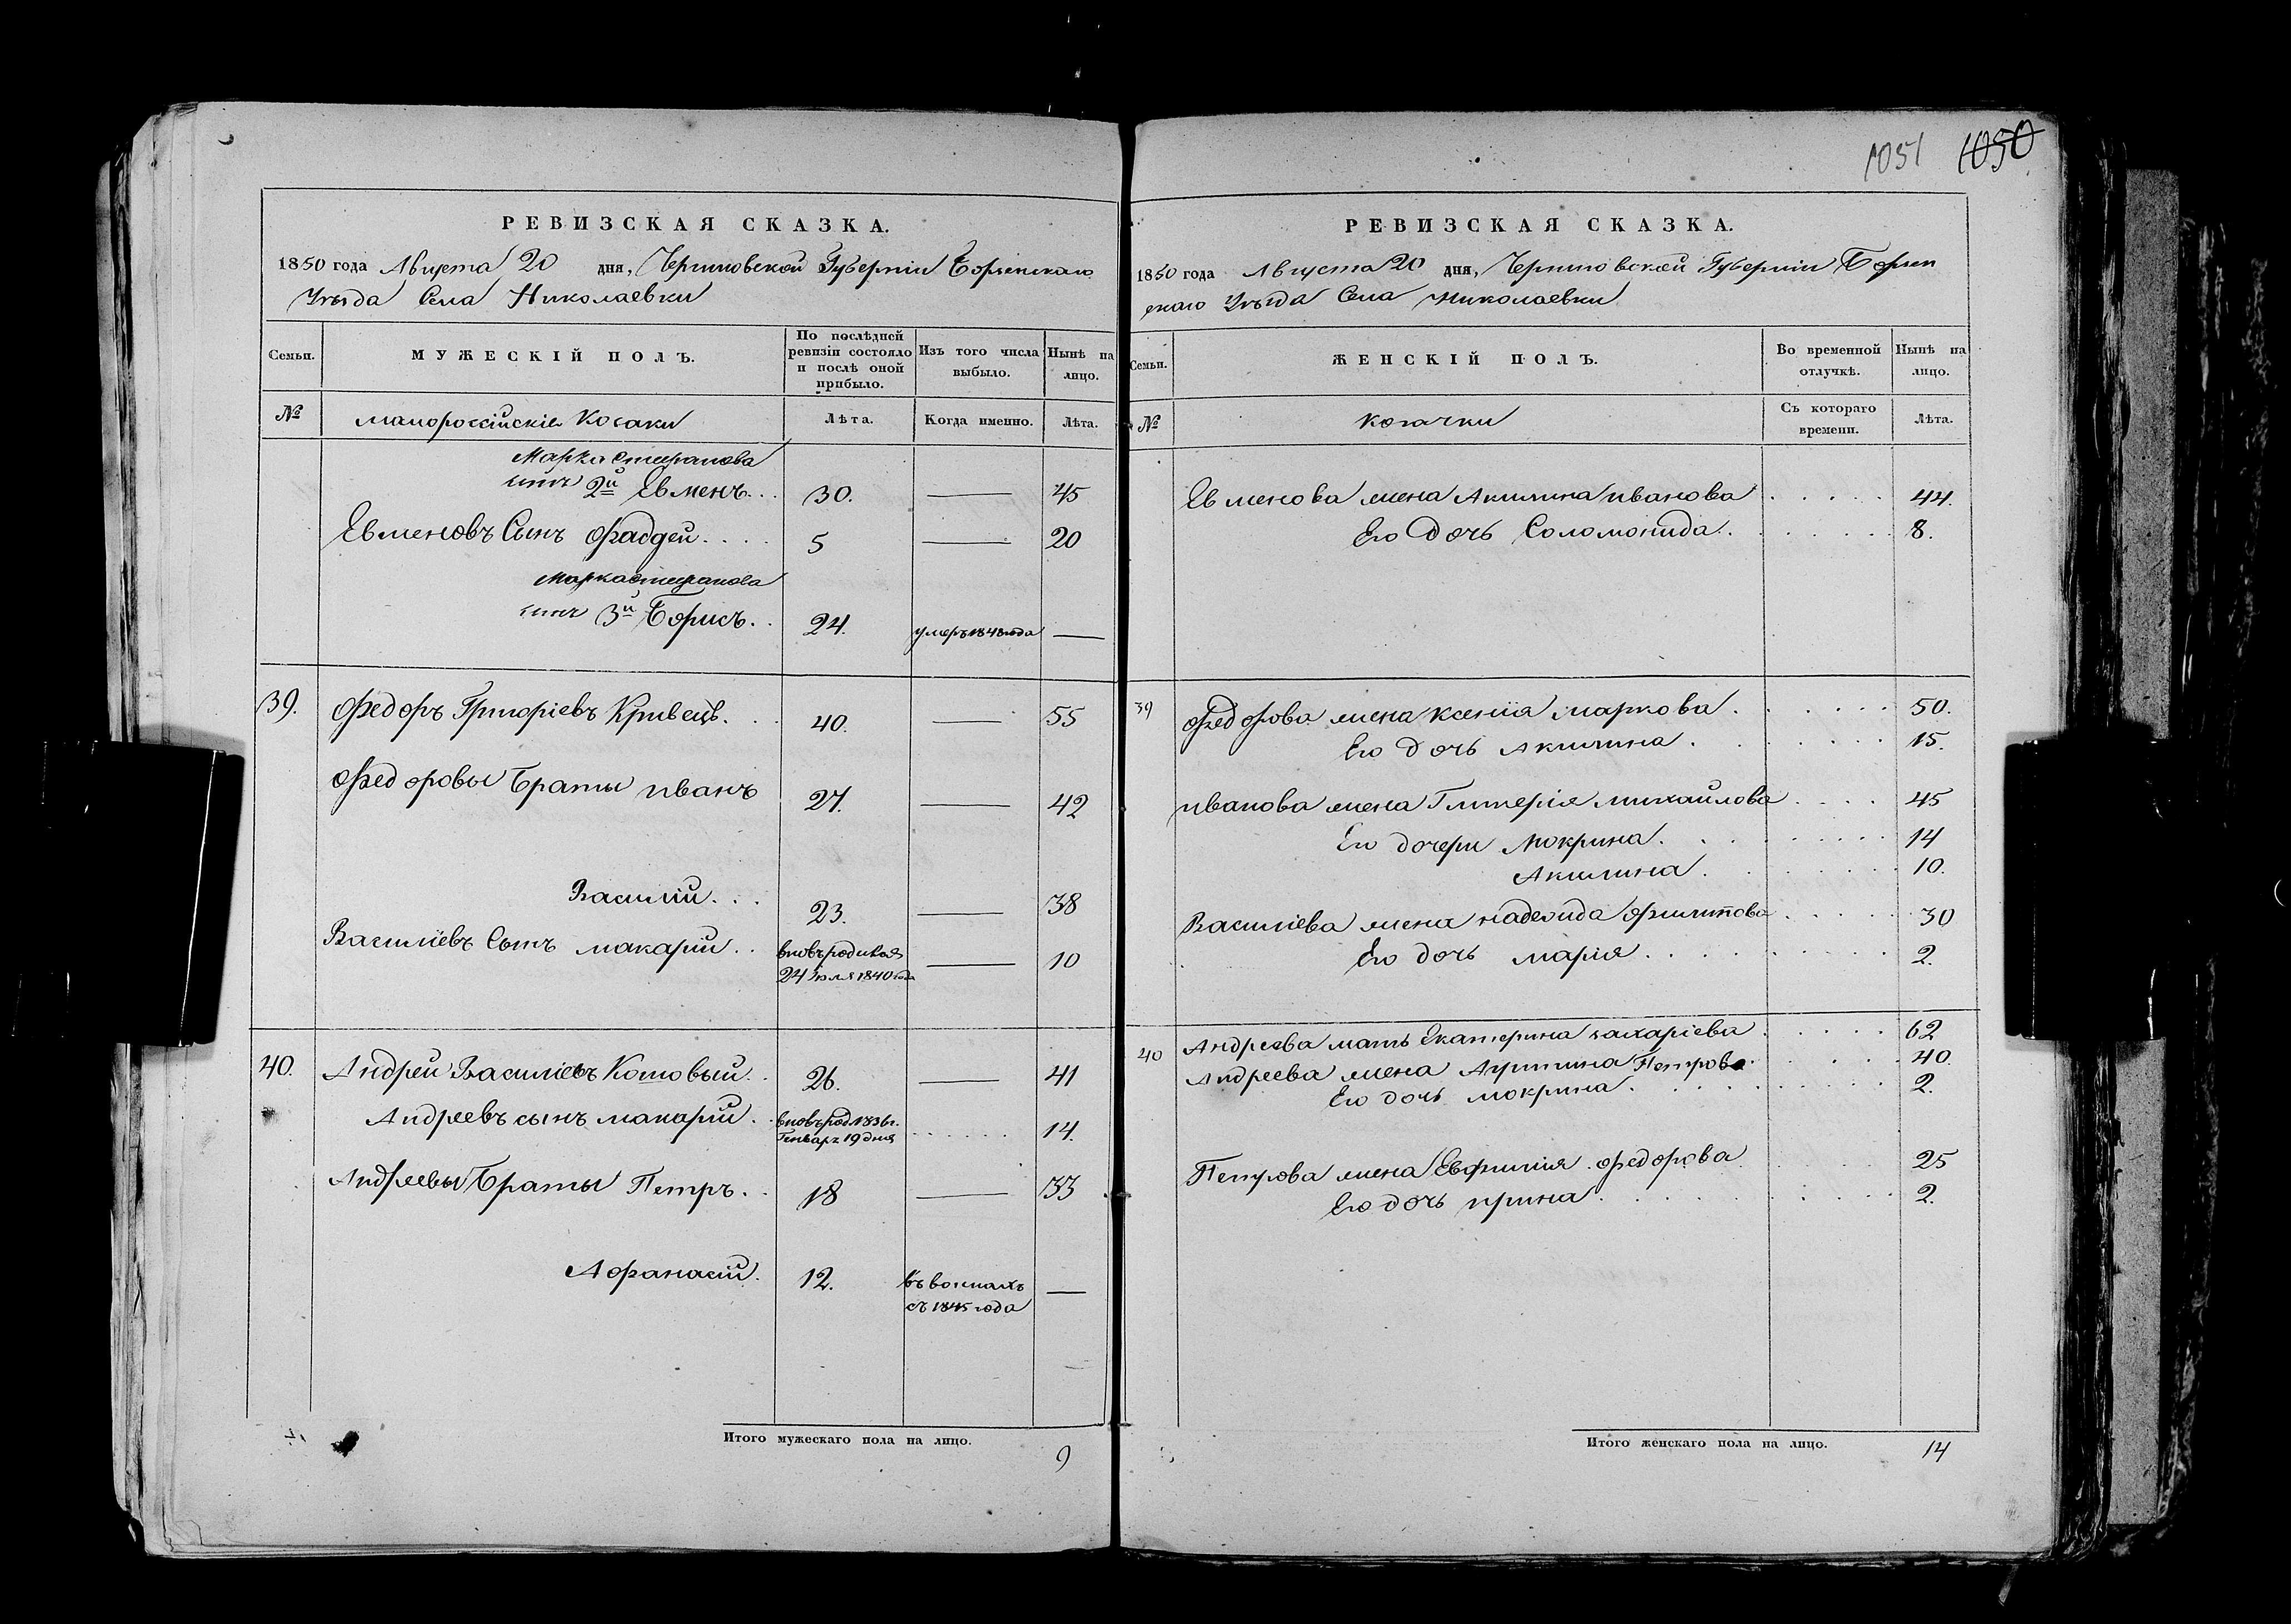 1051 1050
РЕВИЗСКАЯ СКАЗКА.
1850 года Августа 20 дня, Черниговской Губерніи Борзенскаго
Уѣзда Села Николаевки
Семьи.
МУЖЕСКІЙ ПОЛЪ.
По послѣдней ревизіи состояло и послѣ оной прибыло.
Изъ того числа выбыло.
Нынѣ на лицо.
№
малороссійскіе Козаки
Лѣта.
Когда именно.
Лѣта.
Марка Стефанова
сынъ 2й Евменъ... 30. — 45
Евменовъ Сынъ Фаддей.... 5 — 20
Марка Стефанова
сынъ 3й Борисъ.. 24. умеръ 1848 года —
39. Федоръ Григоріевъ Кривецъ. 40. — 55
Федоровы Браты иванъ 27. — 42
Василій... 23. — 38
Василіевъ Сынъ макарій.. вновь родился — 10
24 Іюля 1840 года
40. Андрей Василіевъ Котовый. 26. — 41
Андреевъ сынъ макарій. вновь род. 1836 г. ...... 14.
Генваря 19 дня
Андреевы Браты Петръ.. 18 — 33
Афанасій. 12. —
съ 1845 года
Итого мужескаго пола на лицо. 9
РЕВИЗСКАЯ СКАЗКА.
1850 года Августа 20 дня, Черниговской Губерніи Борзен
скаго Уѣзда Села Николаевки
Семьи.
ЖЕНСКІЙ ПОЛЪ.
Во временной отлучкѣ.
Нынѣ на лицо.
№
козачки
Съ котораго времени.
Лѣта.
Евменова жена Акилина иванова ..... 44.
Его дочь Соломонида....... 8.
39 Федорова жена ксенія маркова ...... 50.
Его дочь Акилина ....... 15.
иванова жена Гликерія михайлова .... 45
Его дочери мокрина ....... 14
Акилина ....... 10.
Василіева жена надежда филипова ..... 30
Его дочь марія ......... 2.
40 Андреева мать Екатерина захаріева ..... 62
Андреева жена Петрова .... 40.
Его дочь мокрина ........ 2.
Петрова жена Евфимія федорова 25
Его дочь ирина ......... 2.
Итого женскаго пола на лицо. 14